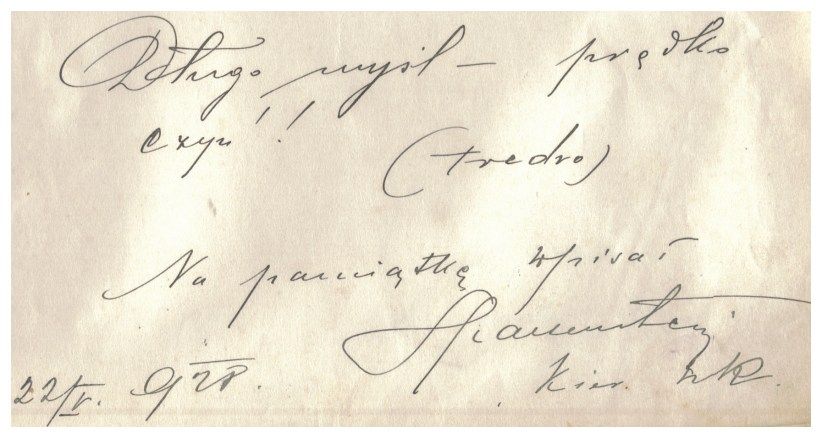 Długo myśl – prędko
czyń!!
(Fredro)
Na pamiątkę wpisał
Kier. szk.
22/V. 928.